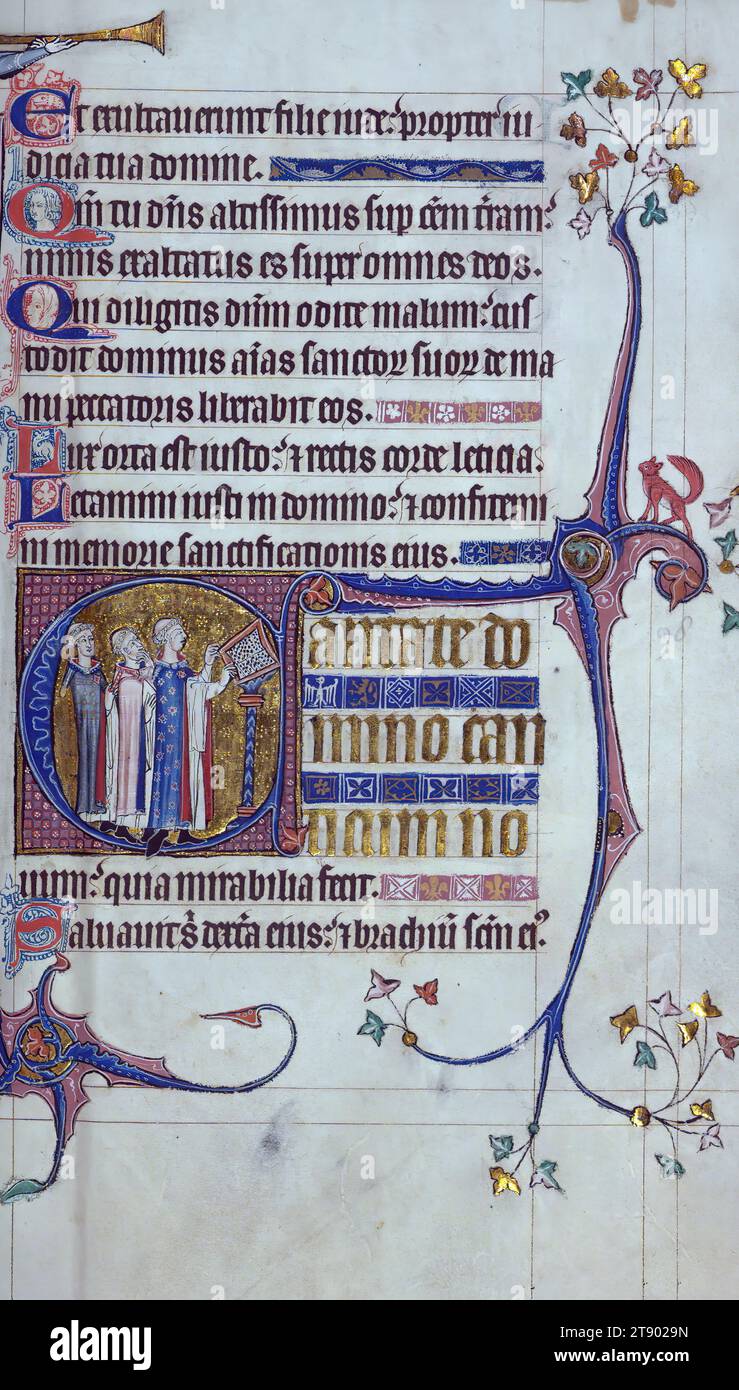 Et exultaverunt filie iude: propter iu
dicia tua domine.
Qm̄ tu dn̄s altissimus sup̄ om̄em t̄ram:
nimis exaltatus es super omnes deos.
Qui diligitis dn̄m odite malum: cus
todit dominus aīas sanctoꝝ suoꝝ de ma
nu peccatoris liberabit eos.
Lux orta est iusto: ⁊ rectis corde leticia.
Letamini iusti in domino: ⁊ confitemini
in memorie sanctificationis eius.
Cantate do
mino can
ticum no
uum: quia mirabilia fecit.
Saluauit s̄ dext̄a eius: ⁊ brachiū sc̄m eiꝰ.
alamy
Image ID: 2T9029N
www.alamy.com